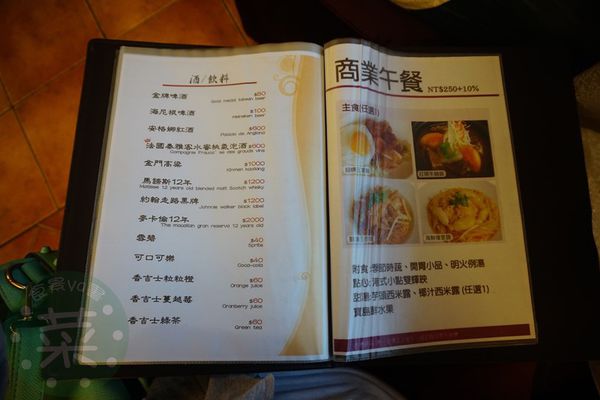 酒/飲料
金牌啤酒 $80
Gold medal taiwan beer
海尼根啤酒 $100
Heineken beer
安格娜紅酒 $600
法國泰雅客水蜜桃氣泡酒 $600
金門高粱 $1000
Kinmen kaoliang
馬諦斯12年 $1200
Matisse 12 years old blended malt Scotch whisky
約翰走路黑牌 $1200
Johnnie walker black label
麥卡倫12年 $2000
The macallan gran reserva 12 years old
雪碧 $40
Sprite
可口可樂 $40
Coca-cola
香吉士粒粒橙 $60
Orange juice
香吉士蔓越莓 $60
Cranberry juice
香吉士綠茶 $60
Green tea
商業午餐 NT$250+10%
主食(任選1)
附食:季節時蔬、開胃小品、明火例湯
點心:港式小點雙輝映
甜湯:芋頭西米露、椰汁西米露 (任選1)
寶島鮮水果
菜